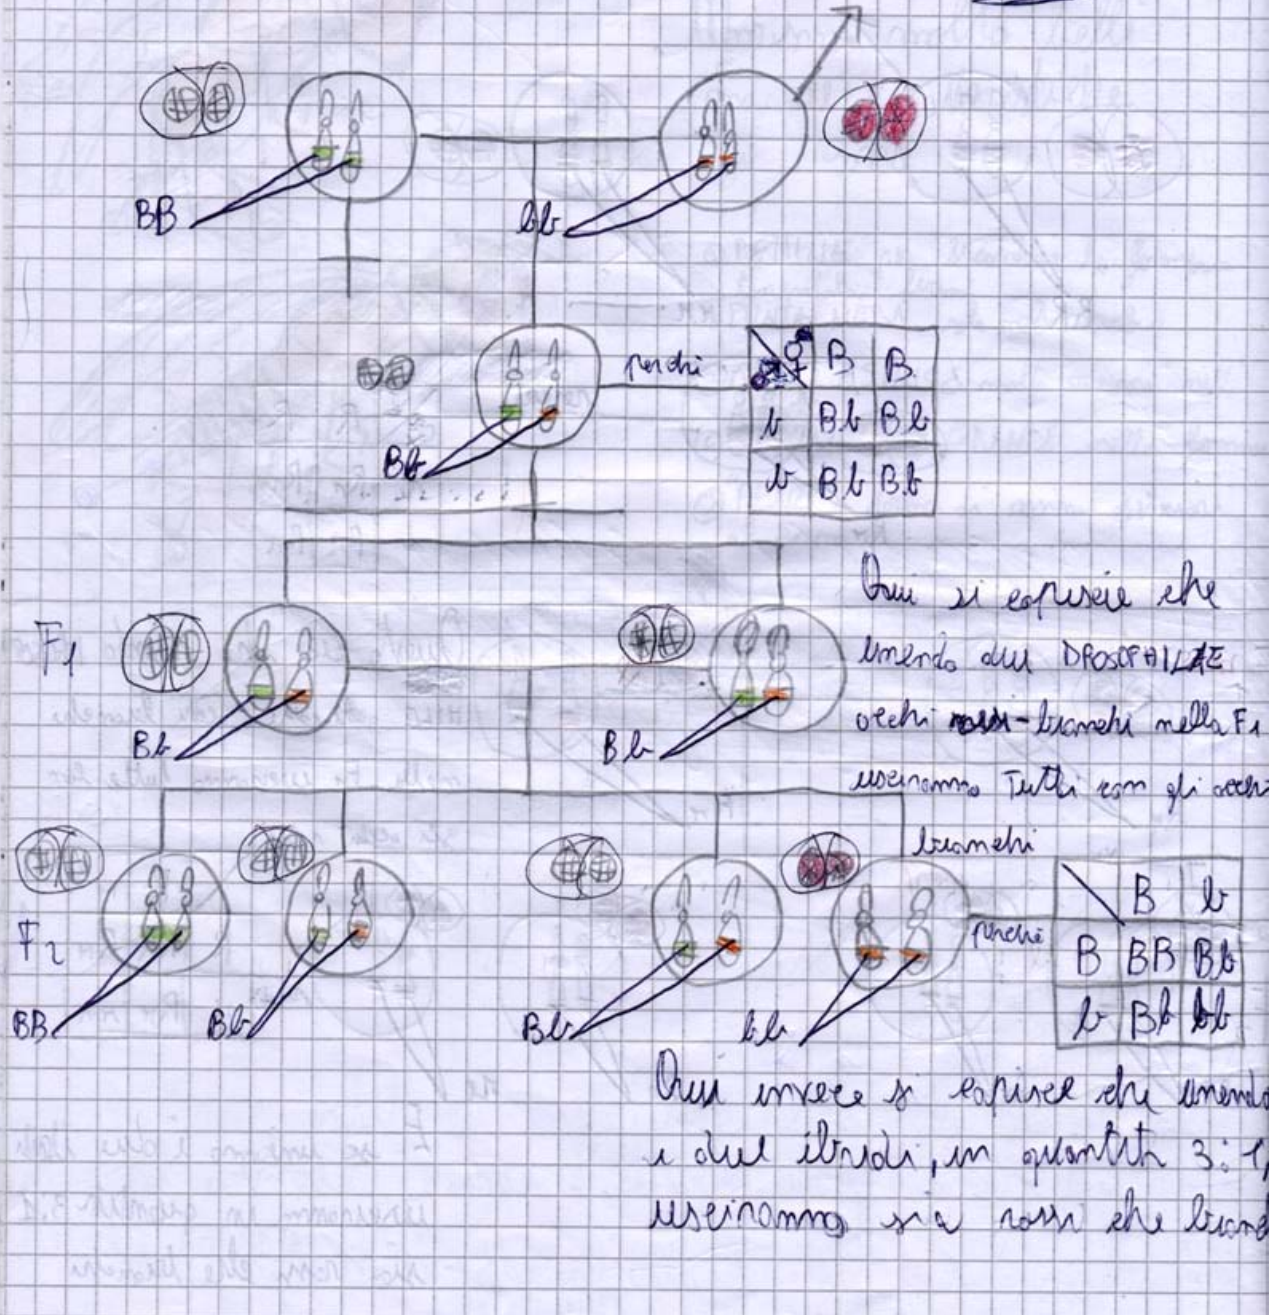 BB
bb
perchè
B B
b Bb Bb
b Bb Bb
Bb
Qui si capiscie che
unendo due DROSOPHILAE
occhi rossi-bianchi nella F1
usciranno Tutti con gli occhi
bianchi
F1
Bb
Bb
F2
perchè
B b
B BB Bb
b Bb bb
BB
Bb
Bb
bb
Qui invece si capisce che unendo
i due ibridi, in quantità 3:1,
usciranno sia rossi che